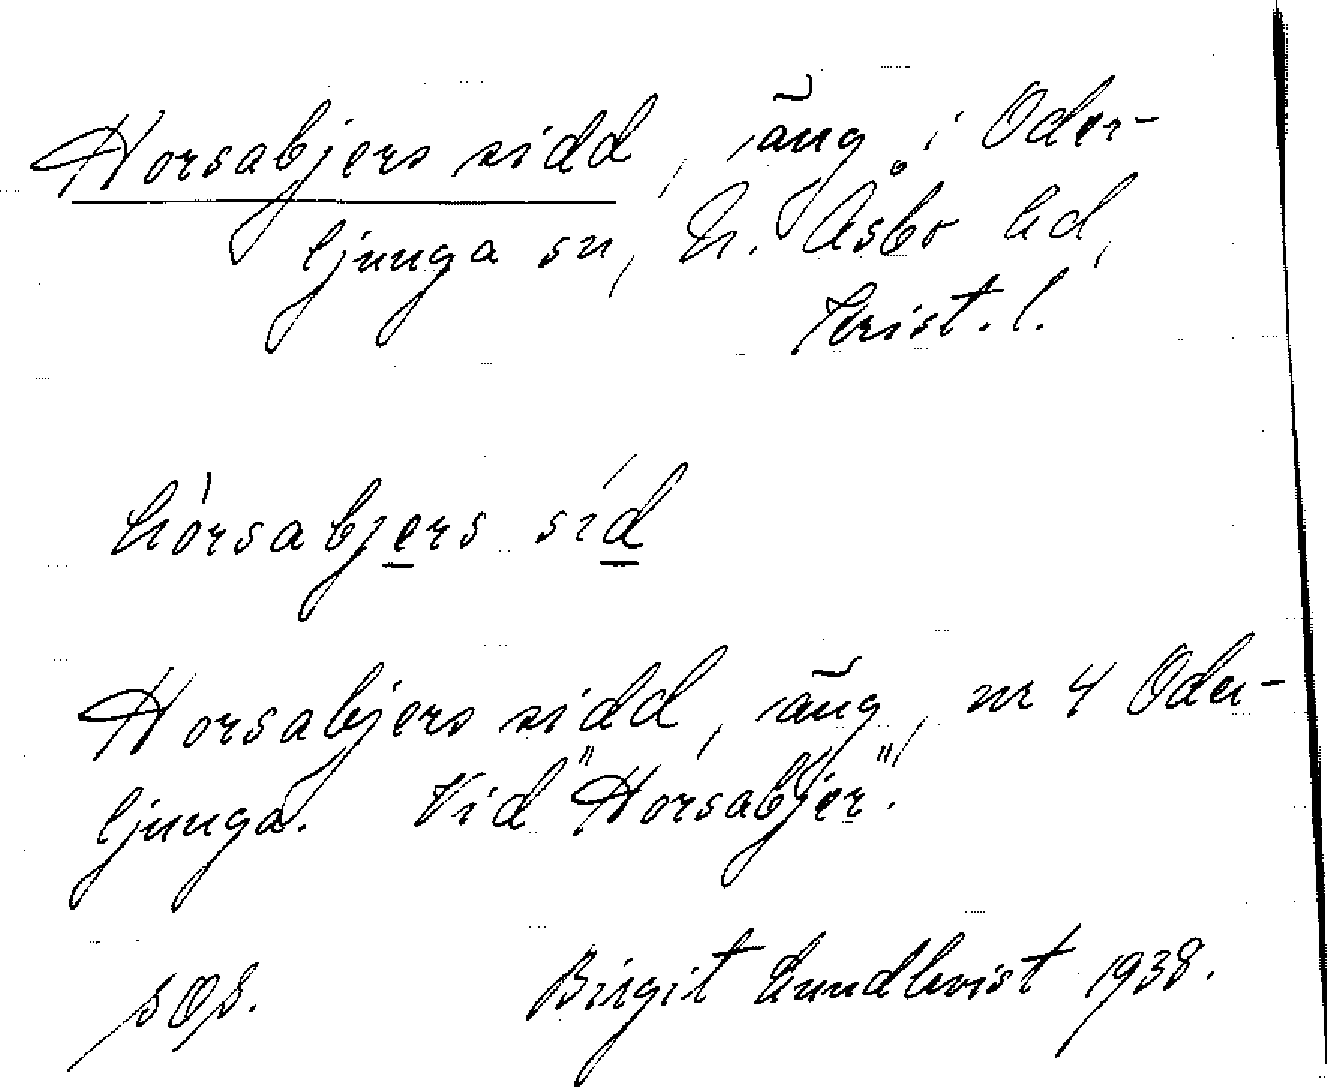 Horsabjers sidd, äng i Oder-
ljunga sn, N. Åsbo hd,
Krist. l.
hórsabjers síd
Horsabjers sidd, äng, nr 4 Oder-
ljunga. Vid "Horsabjer".
Birgit Lundkvist 1938.